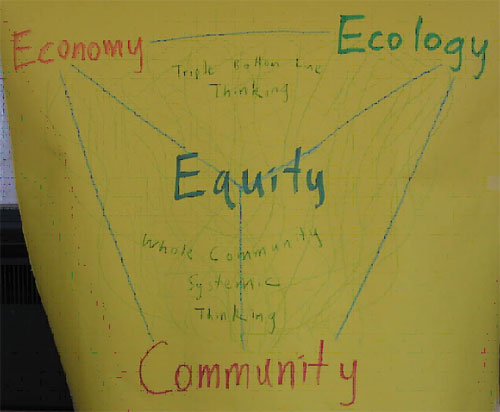 Economy
Ecology
Triple Bottom Line
Thinking
Equity
Whole Community
Systemic
Thinking
Community